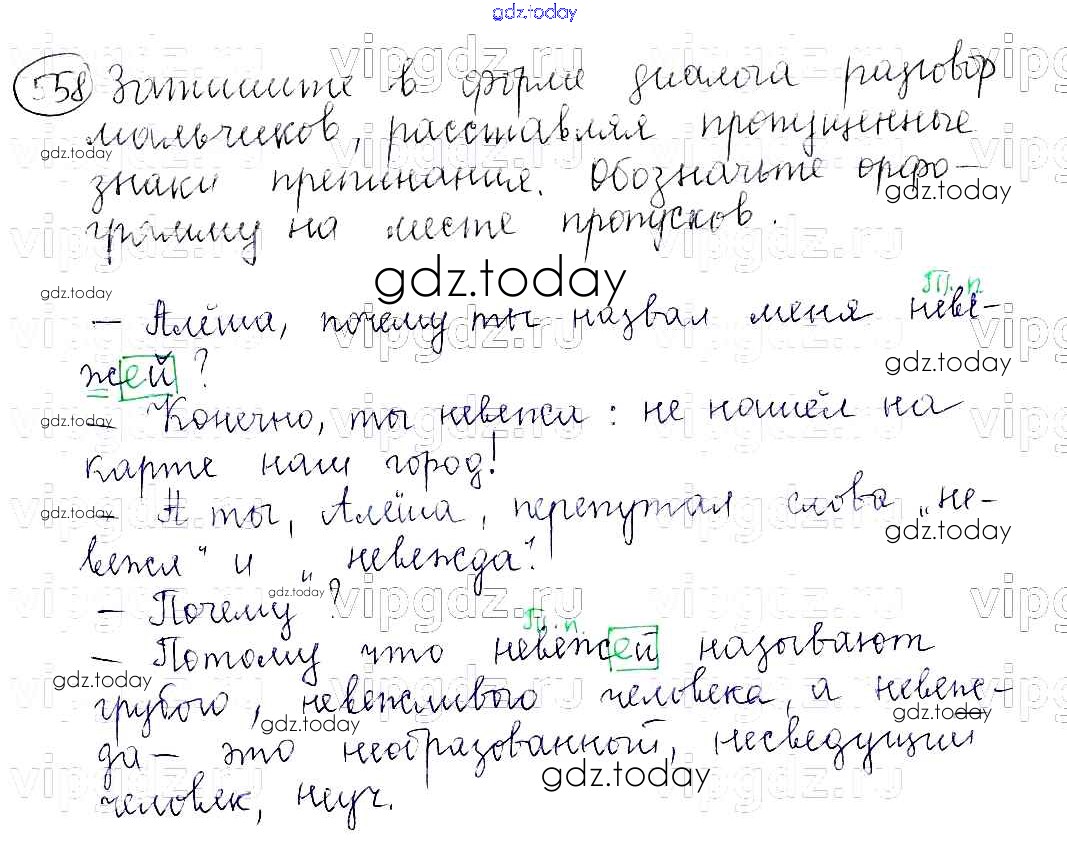 gdz.today
558 Запишите в форме диалога разговор
мальчиков, расставляя пропущенные
знаки препинания. Обозначьте орфо-
грамму на месте пропусков.
gdz.today
П. п.
— Алёша, почему ты назвал меня неве-
жей?
— Конечно, ты невежа: не нашёл на
карте наш город!
— А ты, Алёша, перепутал слова „не-
вежа“ и „невежда“!
— Почему?
П. п.
— Потому что невежей называют
грубого, невежливого человека, а невеж-
да — это необразованный, несведущий
человек, неуч.
gdz.today